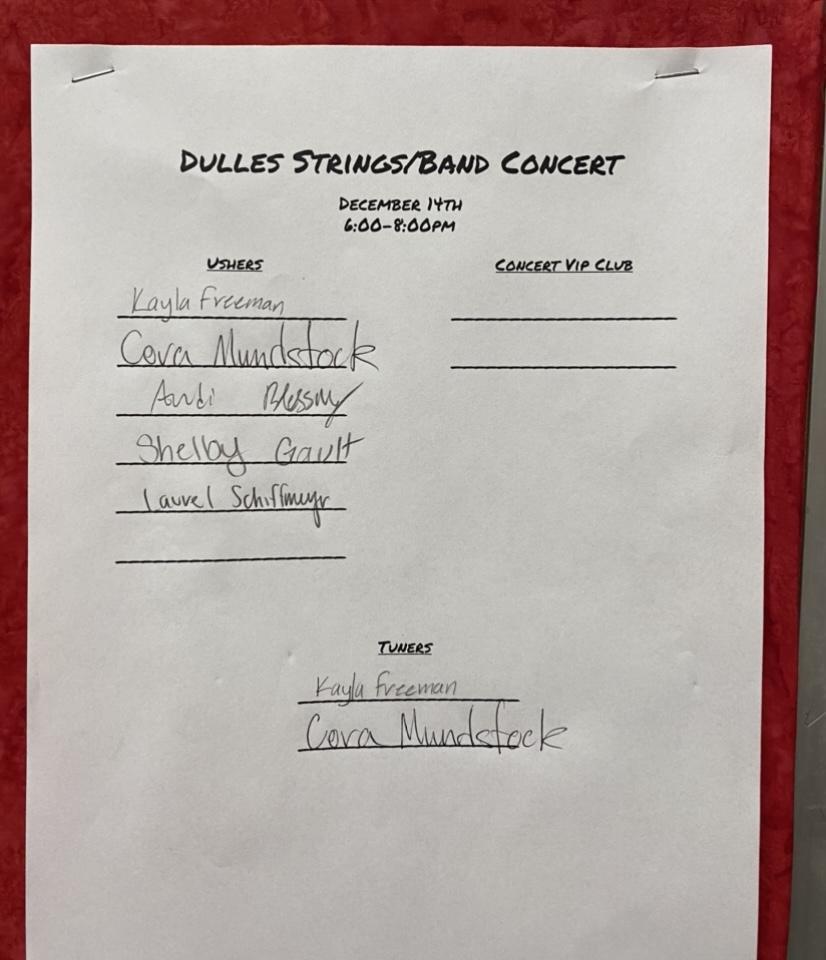 DULLES STRINGS/BAND CONCERT
DECEMBER 14TH
6:00-8:00PM
USHERS
Kayla Freeman
Cora Mundstock
Andi Blessing
Shelby Gault
Laurel Schiffmeyr
CONCERT VIP CLUB
TUNERS
Kayla Freeman
Cora Mundstock